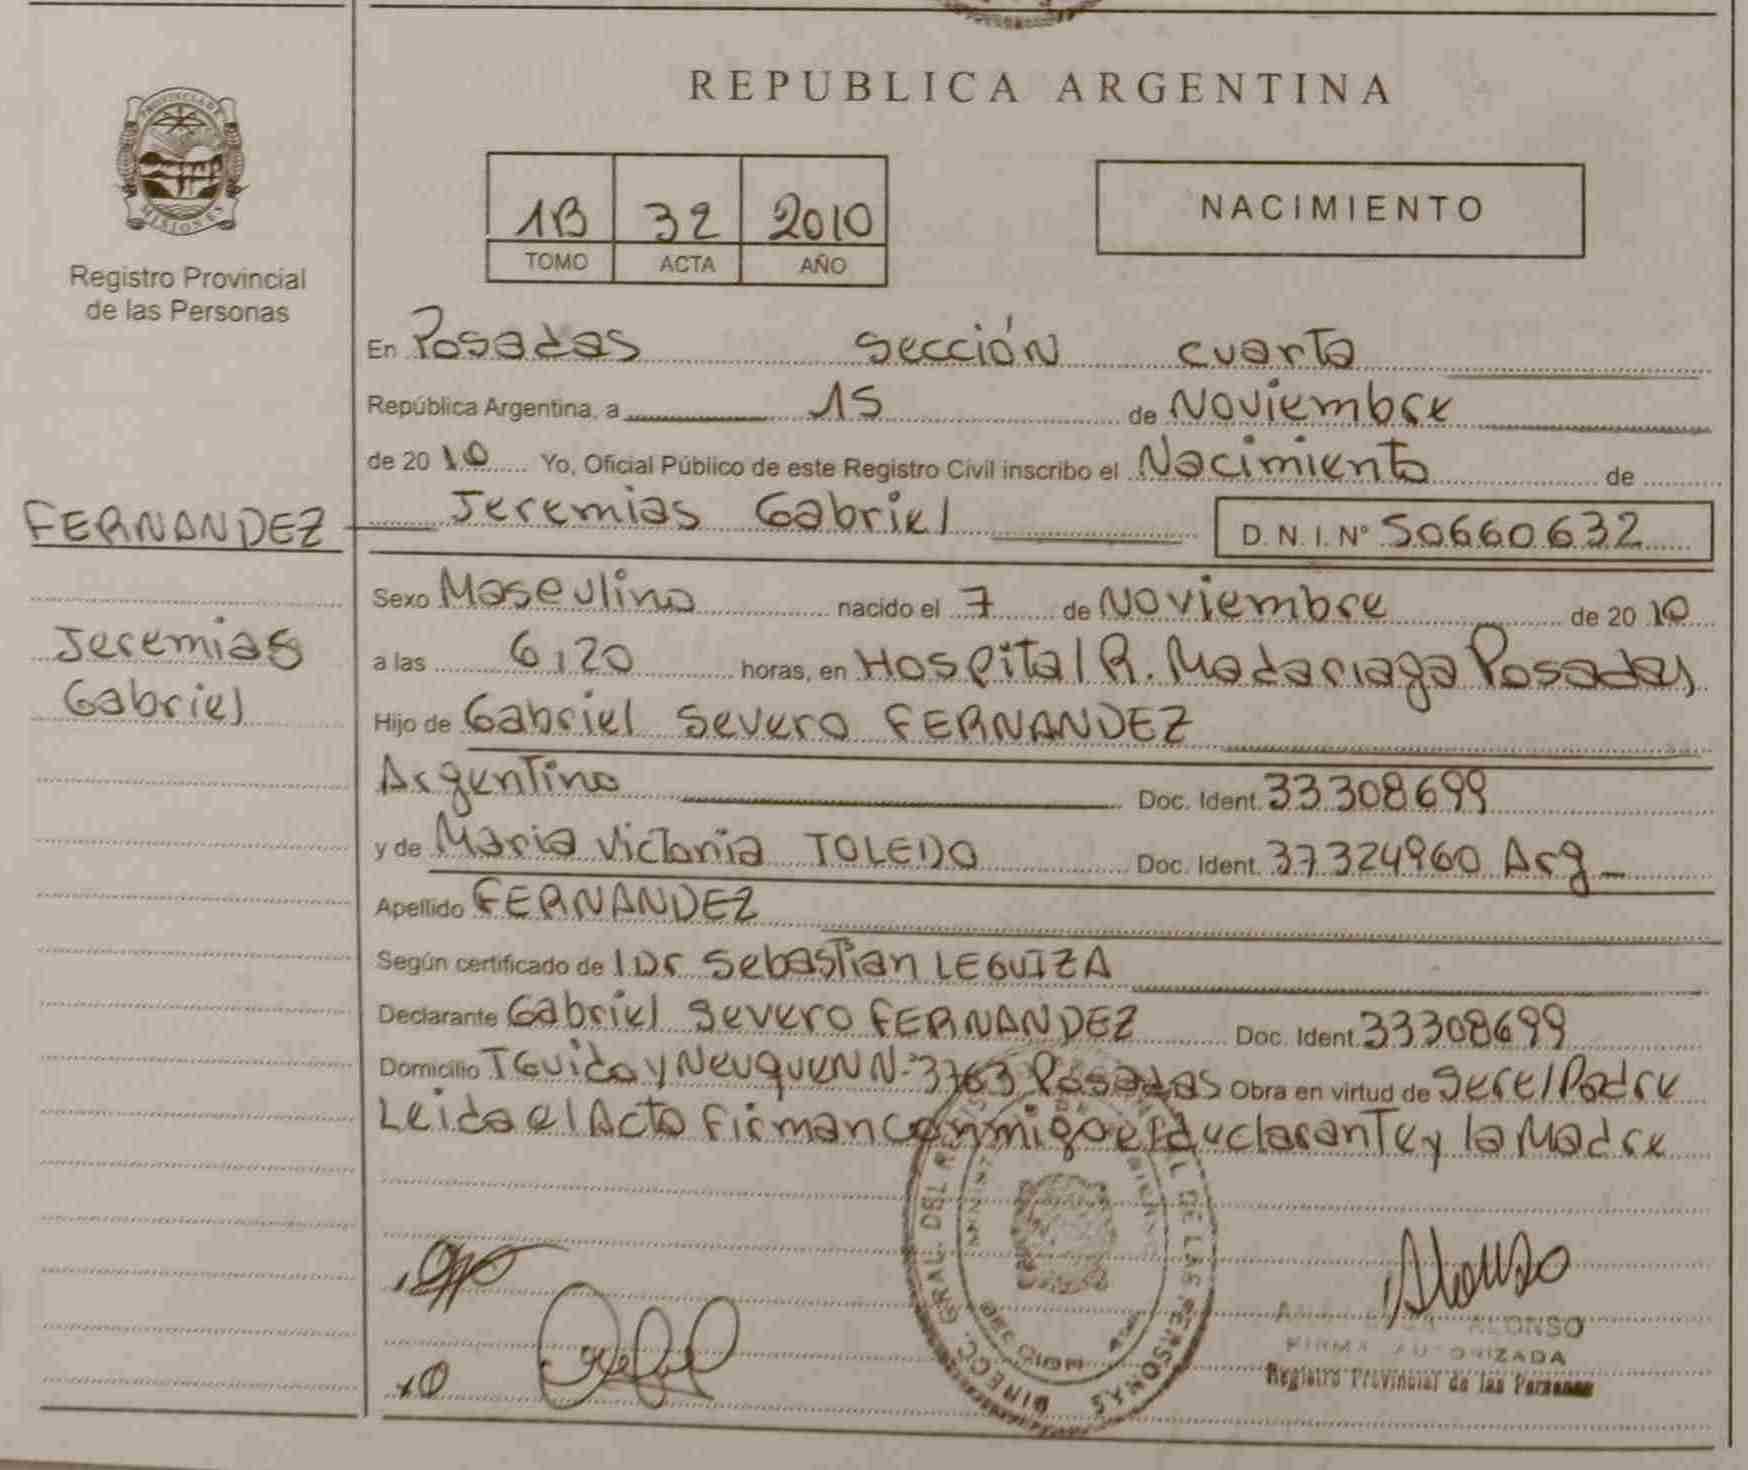 REPUBLICA ARGENTINA
PROVINCIA DE
MISIONES
Registro Provincial
de las Personas
1B 32 2010
TOMO ACTA AÑO
NACIMIENTO
En Posadas sección cuarta
República Argentina, a 15 de Noviembre
de 2010 Yo, Oficial Público de este Registro Civil inscribo el Nacimiento de
FERNANDEZ Jeremias Gabriel D. N. I. Nº 50660632
Jeremias
Gabriel
Sexo Masculino nacido el 7 de Noviembre de 2010
a las 6,20 horas, en Hospital R. Madariaga Posadas
Hijo de Gabriel Severo FERNANDEZ
Argentino Doc. Ident. 33308699
y de Maria Victoria TOLEDO Doc. Ident. 37324960 Arg
Apellido FERNANDEZ
Según certificado de Dr Sebastian LEGUIZA
Declarante Gabriel Severo FERNANDEZ Doc. Ident. 33308699
Domicilio T Guido y Neuquen N-3763 Posadas Obra en virtud de ser el Padre
Leida el Acta firman conmigo el declarante y la Madre
DIRECC. GRAL. DEL DE LAS PERSONAS
ALONSO
FIRMA AUTORIZADA
Registro Provincial de las Personas